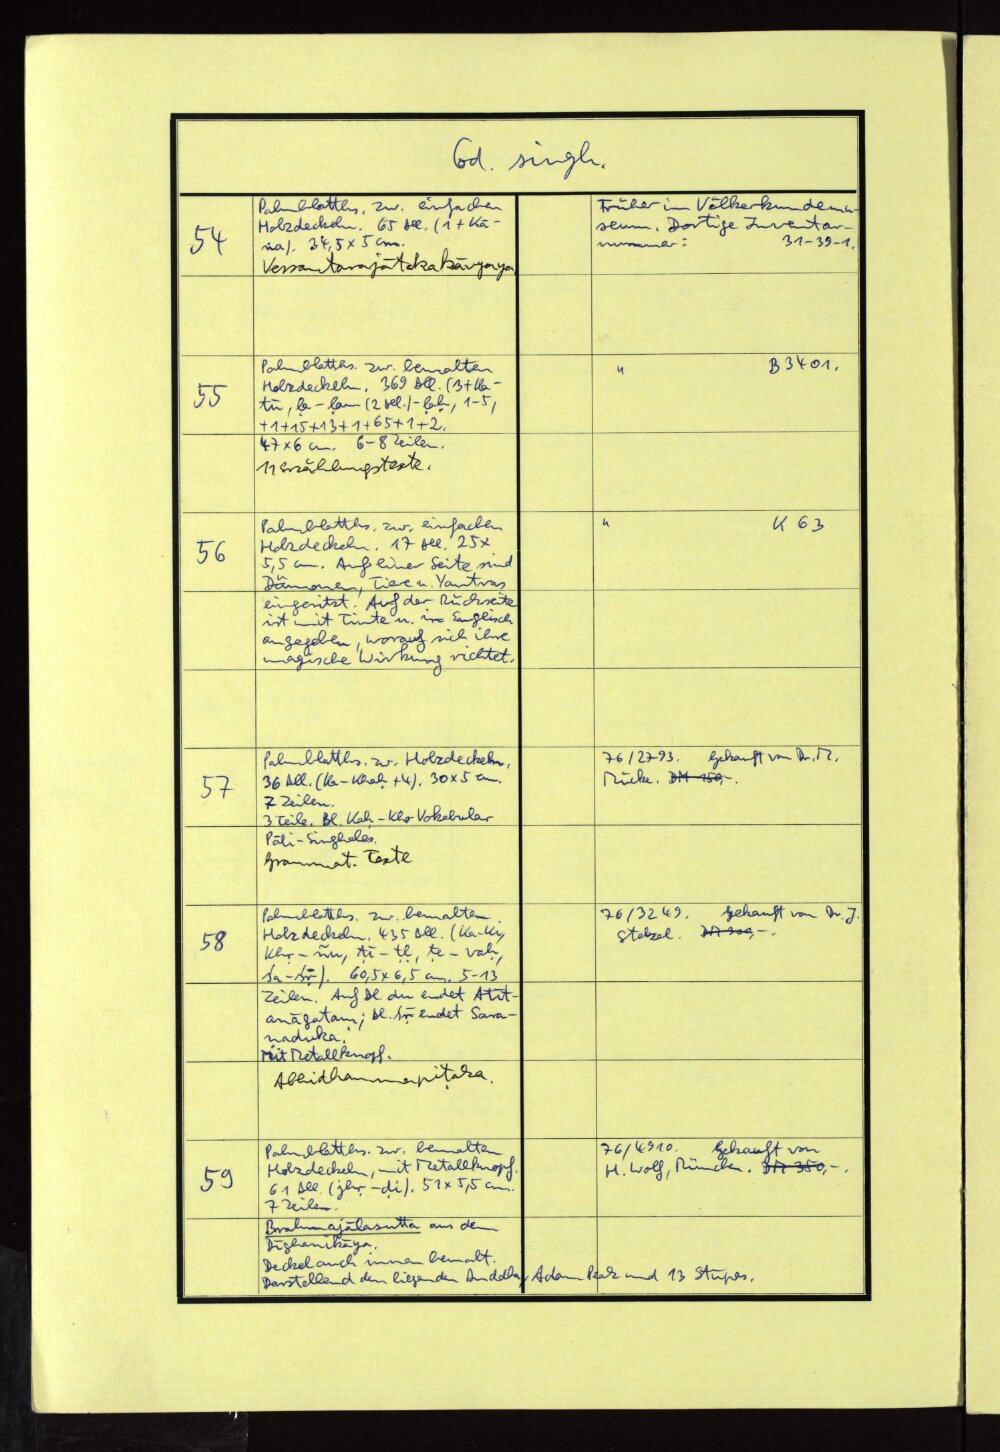 Cod. singh.
54
Palmblatths. zw. einfachen
Holzdeckeln. 65 Bll. (1 + Ka-
ṅa). 34,5 x 5 cm.
Vessantarajātakakāvyaya
Früher im Völkerkundemu-
seum. Dortige Inventar-
nummer: 31-39-1.
55
Palmblatths. zw. bemalten
Holzdeckeln. 369 Bll. (3+Ka-
ḷa - ḷam (2 Bll.) - ḷaḥ, 1-5,
+1+15+13+1+65+1+2.
47 x 6 cm. 6-8 Zeilen.
11 Erzählungstexte.
" B 3401.
56
Palmblatths. zw. einfachen
Holzdeckeln. 17 Bll. 25 x
5,5 cm. Auf einer Seite sind
Dämonen, Tiere u. Yantras
eingeritzt. Auf der Rückseite
ist mit Tinte u. in Englisch
angegeben, worauf sich ihre
magische Wirkung richtet.
" K 63
57
Palmblatths. zw. Holzdeckeln.
36 Bll. (Ka - Khaḥ + 4). 30 x 5 cm.
7 Zeilen.
3 Teile. Bl. Kaḥ - Khṛ Vokabular
Pāli-Singhales.
Grammat. Texte
76/2793. Gekauft von Dr. M.
Mücke. DM 150,-.
58
Palmblatths. zw. bemalten
Holzdeckeln. 435 Bll. (Ka-Ki,
60,5 x 6,5 cm. 5-13
Zeilen. Auf Bl. du endet Atīt-
anāgatam; Bl. endet Sara-
naduka.
Mit Metallknopf.
Abhidhammapiṭaka.
76/3249. Gekauft von Dr. J.
Stetzel. DM 300,-.
59
Palmblatths. zw. bemalten
Holzdeckeln, mit Metallknopf.
61 Bll. (jhṛ - ḍi). 51 x 5,5 cm.
7 Zeilen.
Brahmajālasutta aus dem
Dīghanikāya.
Deckel auch innen bemalt.
Darstellend den liegenden Buddha, Adam Peak und 13 Stupas.
76/4910. Gekauft von
H. Wolf, München. DM 350,-.